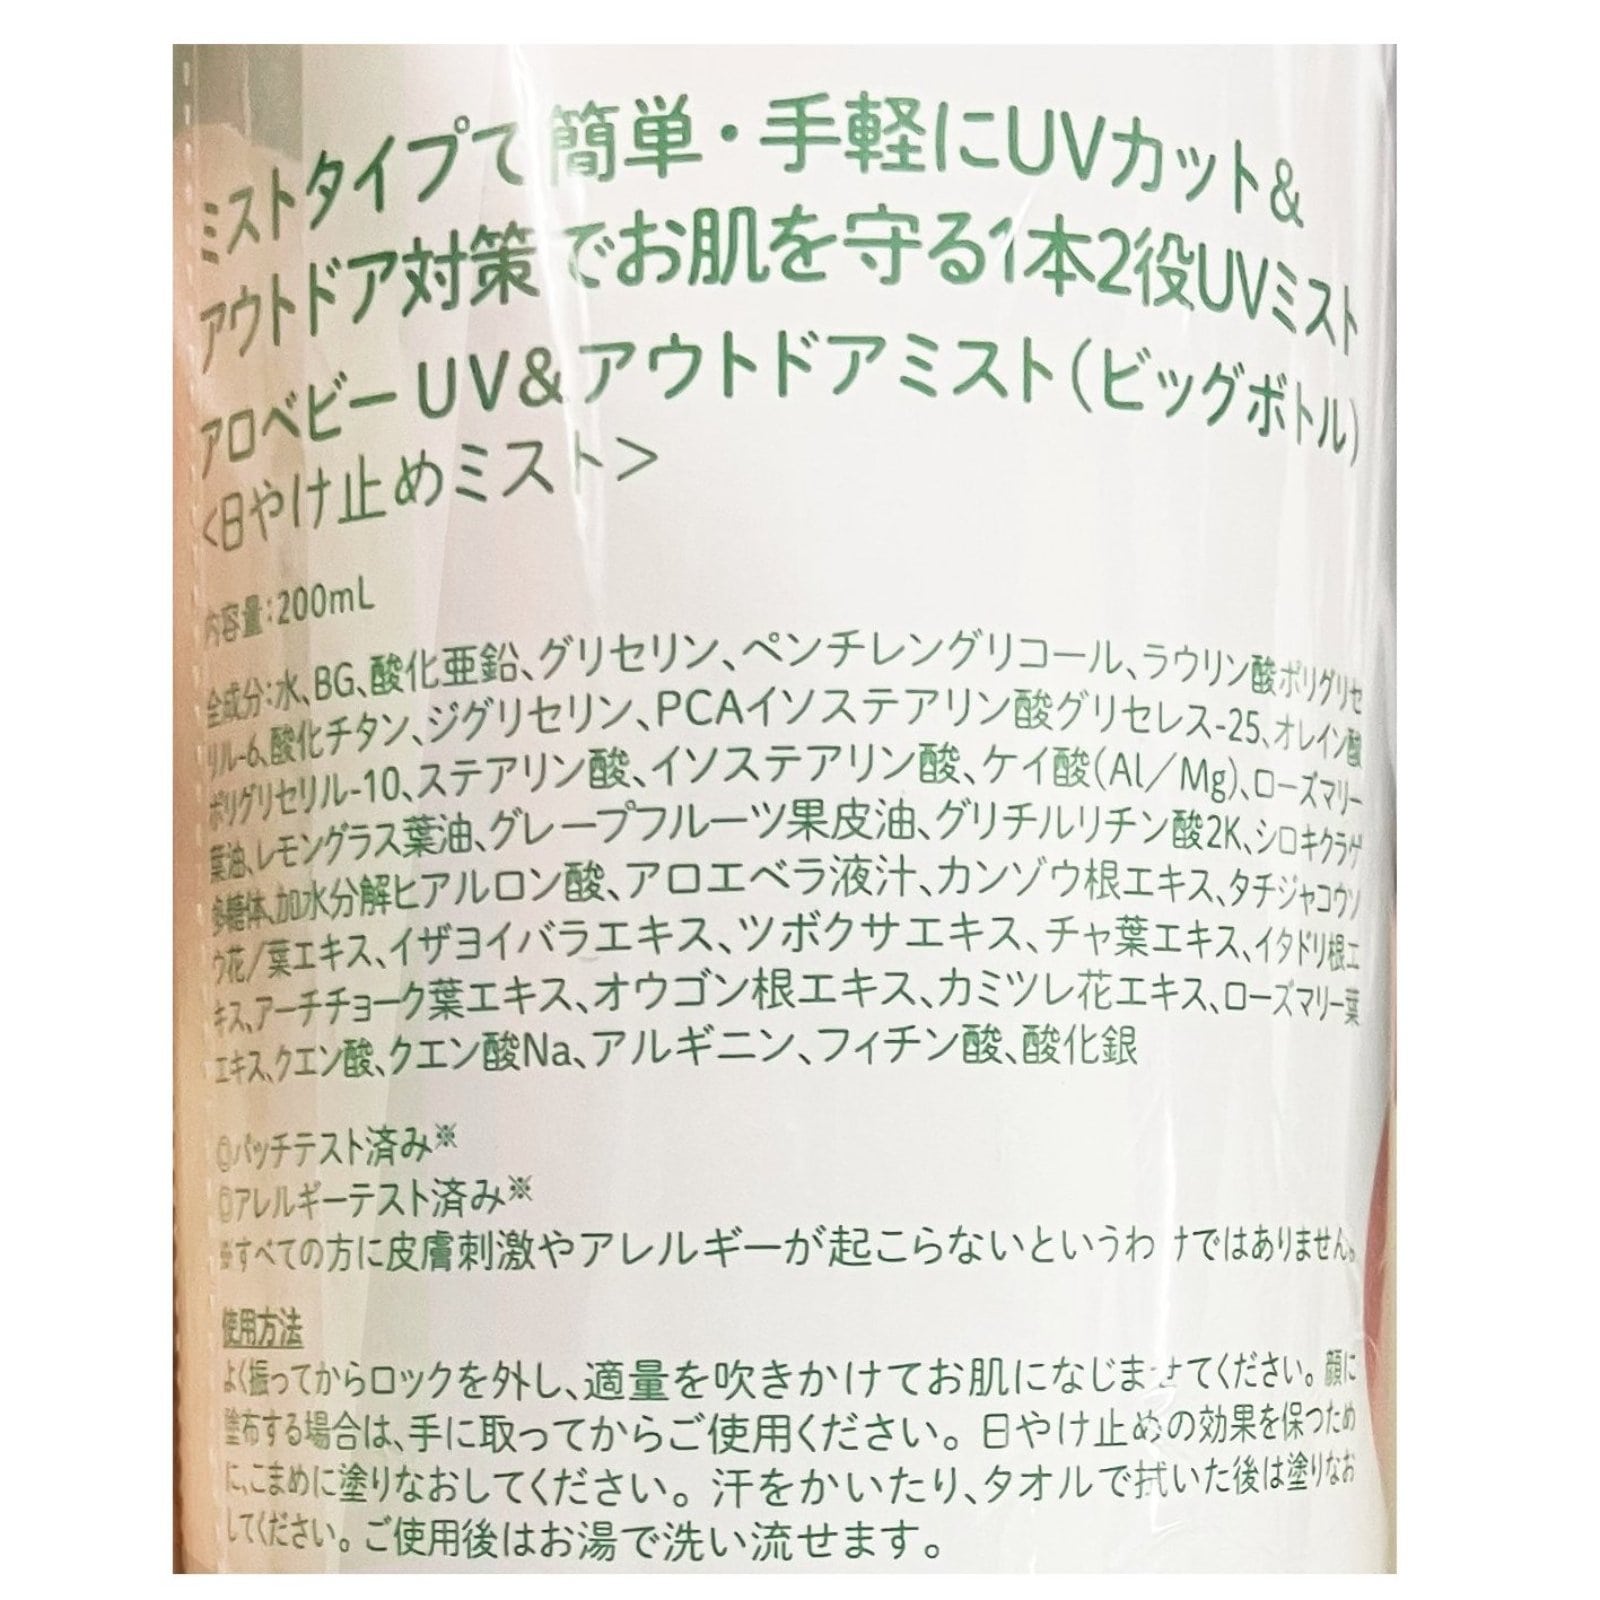 ミストタイプで簡単・手軽にUVカット&
アウトドア対策でお肌を守る1本2役UVミスト
アロベビー UV&アウトドアミスト(ビッグボトル)
<日やけ止めミスト>
内容量:200mL
全成分:水、BG、酸化亜鉛、グリセリン、ペンチレングリコール、ラウリン酸ポリグリセ
リル-6、酸化チタン、ジグリセリン、PCAイソステアリン酸グリセレス-25、オレイン酸
ポリグリセリル-10、ステアリン酸、イソステアリン酸、ケイ酸(Al/Mg)、ローズマリー
葉油、レモングラス葉油、グレープフルーツ果皮油、グリチルリチン酸2K、シロキクラゲ
多糖体、加水分解ヒアルロン酸、アロエベラ液汁、カンゾウ根エキス、タチジャコウソ
ウ花/葉エキス、イザヨイバラエキス、ツボクサエキス、チャ葉エキス、イタドリ根エ
キス、アーチチョーク葉エキス、オウゴン根エキス、カミツレ花エキス、ローズマリー葉
エキス、クエン酸、クエン酸Na、アルギニン、フィチン酸、酸化銀
◎パッチテスト済み※
◎アレルギーテスト済み※
※すべての方に皮膚刺激やアレルギーが起こらないというわけではありません。
使用方法
よく振ってからロックを外し、適量を吹きかけてお肌になじませてください。顔に
塗布する場合は、手に取ってからご使用ください。日やけ止めの効果を保つため
に、こまめに塗りなおしてください。汗をかいたり、タオルで拭いた後は塗りなお
してください。ご使用後はお湯で洗い流せます。